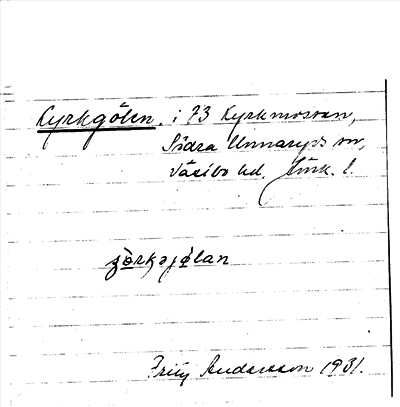 Kyrkgölen, i 73 Kyrkmossen,
Södra Unnaryds sn,
Västbo hd, Jönk. l.
Fritz Andersson 1931.